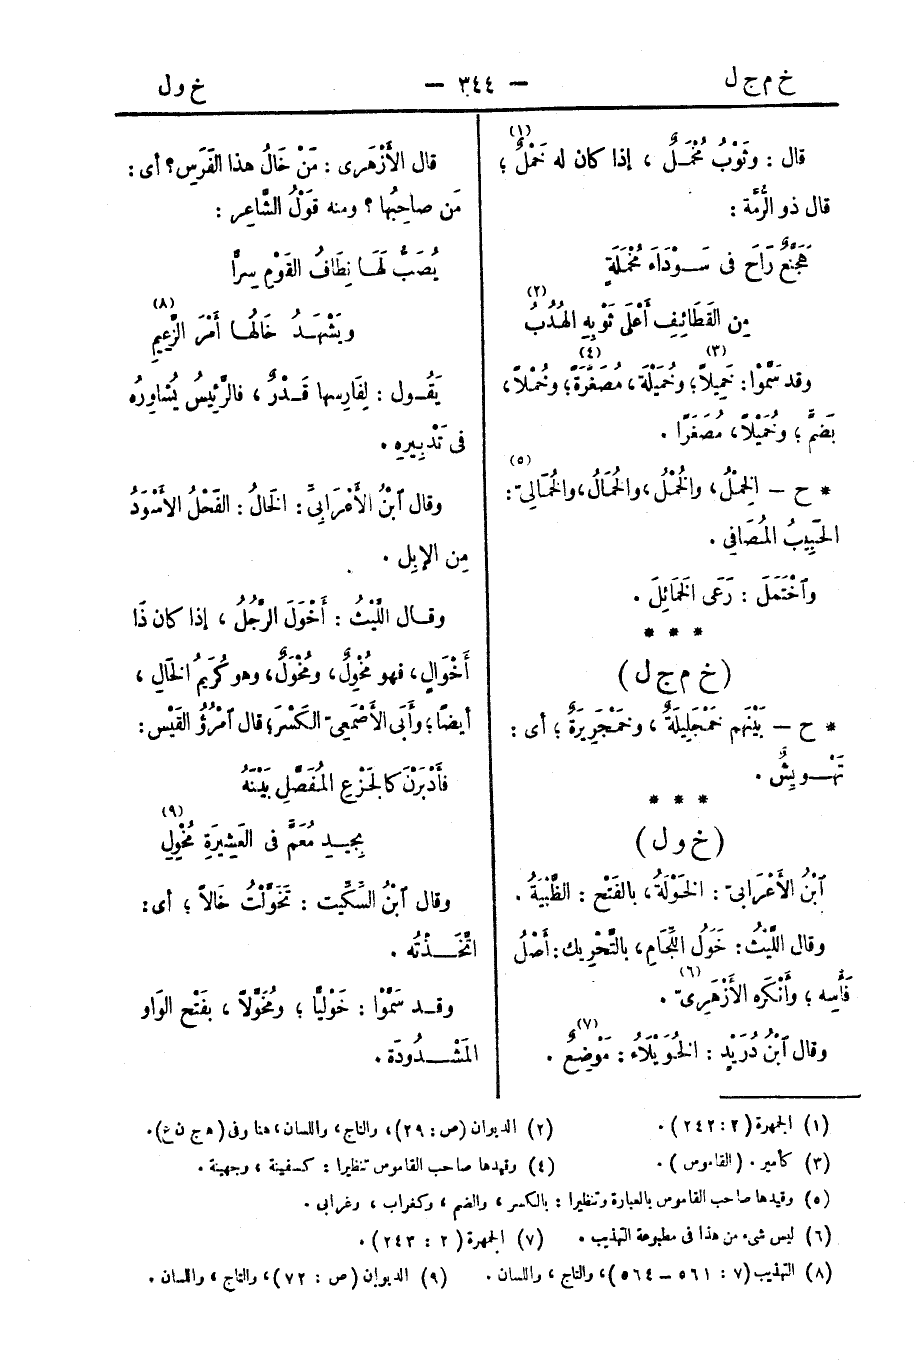 خ م ج ل
— ٣٤٤ —
خ و ل
قال : وثَوْبٌ مُخْمَلٌ (١) ، إذا كان له خَمْلٌ ؛
قال ذو الرُّمَّة :
هَجَنَّعٌ رَاحَ فى سَــوْدَاءَ مُخْمَلَةٍ
مِن القَطَائِفِ أَعْلَى ثَوْبِه الهُدُبُ (٢)
وقد سَمَّوْا : خَمِيلاً (٣) ؛ وخُمَيْلَة ، مُصَغَّرَةً (٤) ؛ وخُمْلاً ،
بَضَمٍّ ؛ وخُمَيْلاً ، مُصَغَرًا .
* ح — الخِمْلُ ، والخُمْلُ ، والخُمَالُ ، والخُمَالِىّ (٥) :
الحَبِيبُ المُصَافِى .
وٱخْتَمَلَ : رَعَى الخَمَائِلَ .
* * *
( خ م ج ل )
* ح — بَيْنَهم خَمْجَلِيلَةٌ ، وخَمْجَرِيرَةٌ ؛ أى :
تَهْـــوِيشٌ .
* * *
( خ و ل )
ٱبْنُ الأَعْرابىّ : الخَوْلَةُ ، بالفَتْح : الظَّبْيَةُ .
وقال اللَّيْثُ : خَوَلُ اللِّجَامِ ، بالتَّحْرِيك : أَصْلُ
فَأْسِه ؛ وأَنْكَره الأَزْهَرِىّ (٦) .
وقال ٱبْنُ دُرَيْدٍ : الخُوَيْلَاءُ : مَوْضِعٌ (٧) .
قال الأَزْهَرى : مَنْ خَالُ هذا الفَرَسِ ؟ أى :
مَن صاحِبُها ؟ ومنه قَوْلُ الشَّاعِر :
يُصَبُّ لَهَــا نِطَافُ القَوْمِ سِرًّا
ويَشْهَــدُ خَالُهَــا أَمْرَ الزَّعِيمِ (٨)
يَقُــول : لِفَارِسِها قَــدْرٌ ، فالرَّئِيسُ يُشَاوِرُه
فى تَدْبِيرِه .
وقال ٱبْنُ الأَعْرَابِىِّ : الخَالُ : الفَحْلُ الأَسْوَدُ
مِن الإِبِل .
وقــال اللَّيْثُ : أَخْوَلَ الرَّجُلُ ، إذا كان ذَا
أَخْوَالٍ ، فهو مُخْوِلٌ ، ومُخْوَلٌ ، وهو كَرِيمُ الخَالِ ،
أيضًا ؛ وأَبَى الأَصْمَعِىّ الكَسْرَ ؛ قال ٱمْرُؤ القَيْس :
فأَدْبَرْنَ كالجَزْعِ المُفَصَّلِ بَيْنَهُ
بِجِيــدِ مُعَمٍّ فى العَشِيرَةِ مُخْوِلِ (٩)
وقال ٱبْنُ السِّكِّيت : تَخَوَّلْتُ خَالاً ؛ أى :
اتَّخَــــذْتُه .
وقــد سَمَّوْا : خَوْلِيًّا ؛ ومُخَوَّلاً ، بفَتْح الوَاو
المَشْــــدُودَة .
(١) الجمهرة ( ٢ : ٢٤٢ ) . (٢) الديوان (ص : ٢٩) ، والتاج ، واللسان ، هنا وفى ( ه ج ن ع ) .
(٣) كأمير . ( القاموس ) . (٤) وقيدها صاحب القاموس تنظيرا : كسفينة ، وجهينة .
(٥) وقيدها صاحب القاموس بالعبارة وتنظيرا : بالكسر ، والضم ، وكغراب ، وغرابى .
(٦) ليس شىء من هذا فى مطبوعة التهذيب . (٧) الجمهرة ( ٢ : ٢٤٣ ) .
(٨) التهذيب (٧ : ٥٦١ — ٥٦٤) ، والتاج ، واللسان . (٩) الديوان (ص : ٧٢) ، والتاج ، واللسان .